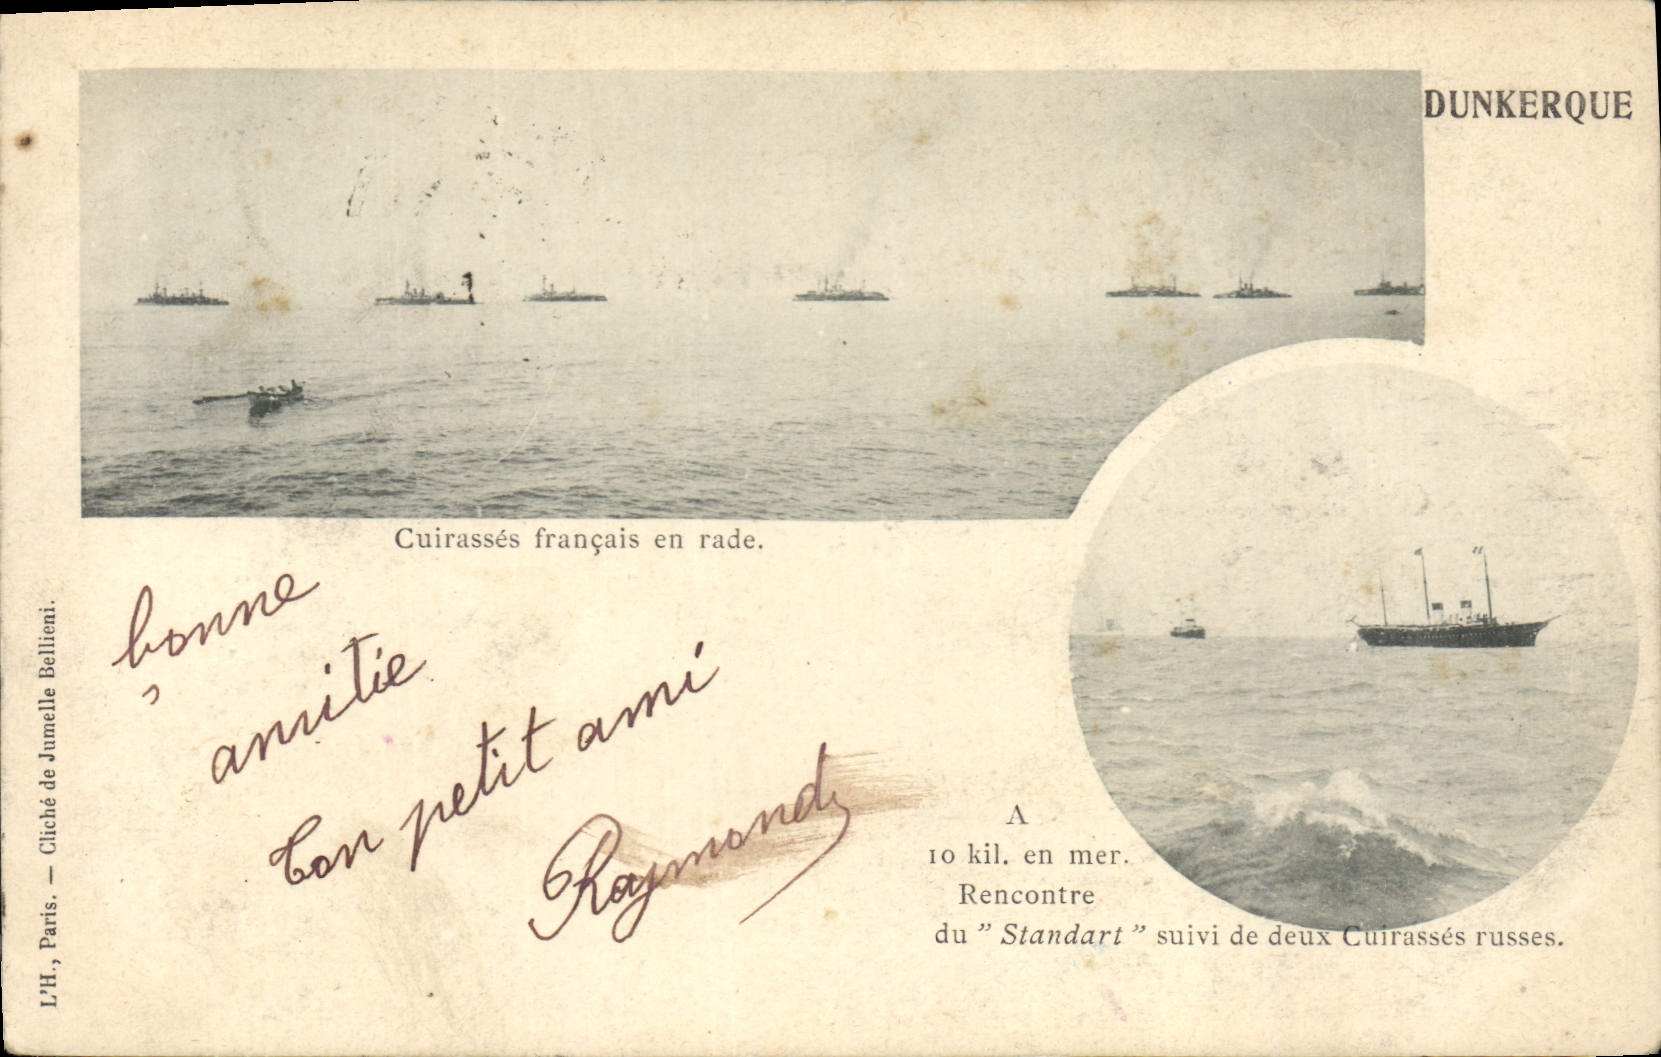 DUNKERQUE
Cuirassés français en rade.
bonne
amitié
Ton petit ami
Raymond
A
10 kil. en mer.
Rencontre
du " Standart " suivi de deux Cuirassés russes.
L'H., Paris. — Cliché de Jumelle Bellieni.